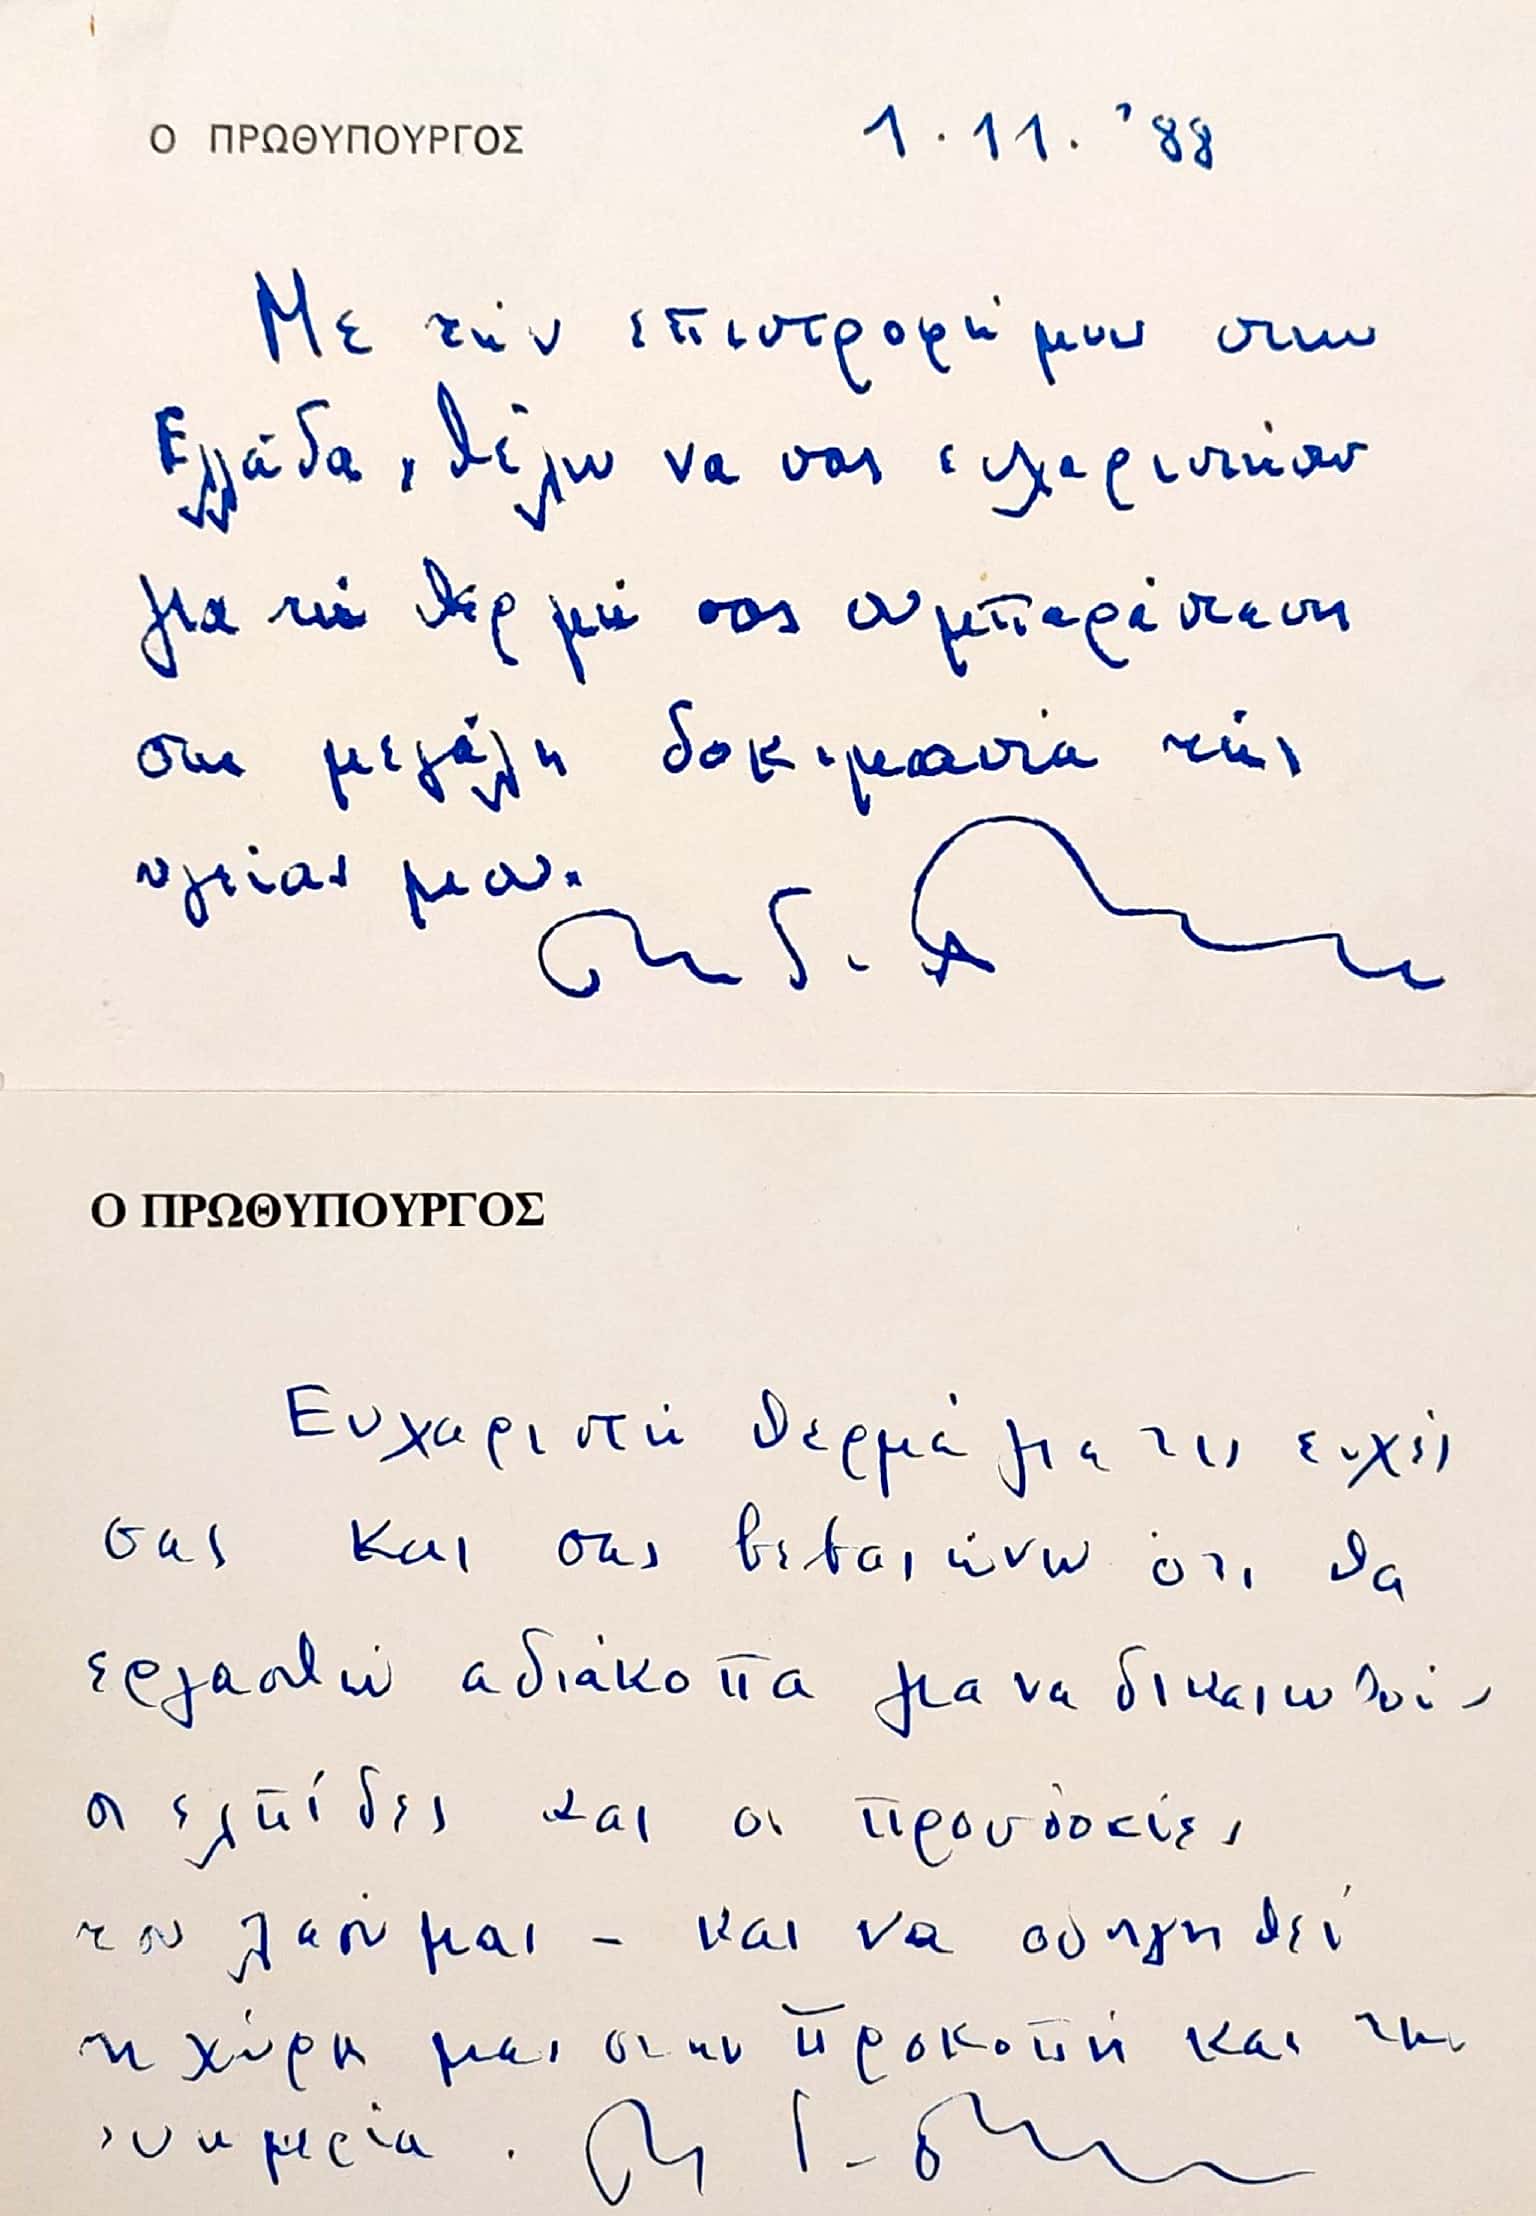 Ο ΠΡΩΘΥΠΟΥΡΓΟΣ
1.11.'88
Με την επιστροφή μου στην
Ελλάδα, θέλω να σας ευχαριστήσω
για τη θερμή σας συμπαράσταση
στη μεγάλη δοκιμασία της
υγείας μου.
Ο ΠΡΩΘΥΠΟΥΡΓΟΣ
Ευχαριστώ θερμά για τις ευχές
σας και σας βεβαιώνω ότι θα
εργασθώ αδιάκοπα για να δικαιωθούν
οι ελπίδες και οι προσδοκίες
του λαού μας - και να οδηγηθεί
η χώρα μας στην προκοπή και την
ευημερία.